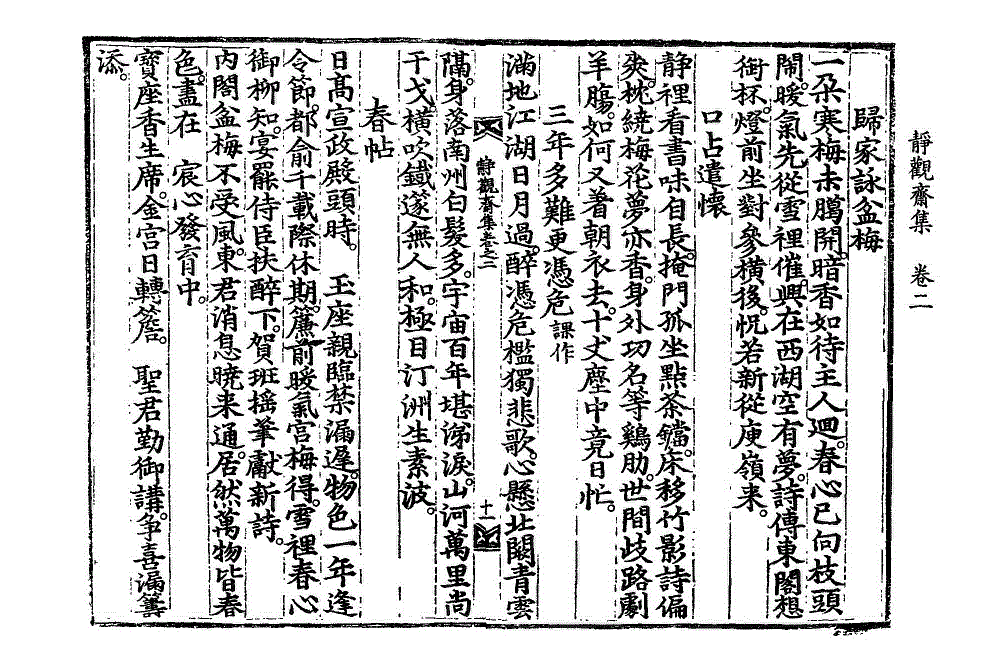 靜觀齋集　卷二
歸家詠盆梅
一朶寒梅未臘開。暗香如待主人廻。春心已向枝頭
鬧。暖氣先從雪裡催。興在西湖空有夢。詩傳東閣想
銜杯。燈前坐對參橫後。怳若新從庾嶺来。
口占遣懷
静裡看書味自長。掩門孤坐點茶鐺。床移竹影詩偏
爽。枕繞梅花夢亦香。身外功名等鷄肋。世間歧路劇
羊膓。如何又着朝衣去。十丈塵中竟日忙。
三年多難更憑危 課作
滿地江湖日月過。醉憑危檻獨悲歌。心懸北闕青雲
静觀齋集卷之二　十一
隔。身落南州白髮多。宇宙百年堪涕淚。山河萬里尚
干戈。橫吹鐵篴無人和。極目汀洲生素波。
春帖
日高宣政殿頭時。　玉座親臨禁漏遲。物色一年逢
令節。都俞千載際休期。簾前暖氣宮梅得。雪裡春心
御柳知。宴罷侍臣扶醉下。賀班搖筆獻新詩。
內閣盆梅不受風。東君消息曉来通。居然萬物皆春
色。盡在　宸心發育中。
寶座香生席。金宮日轉簷。　聖君勤御講。争喜漏籌
添。